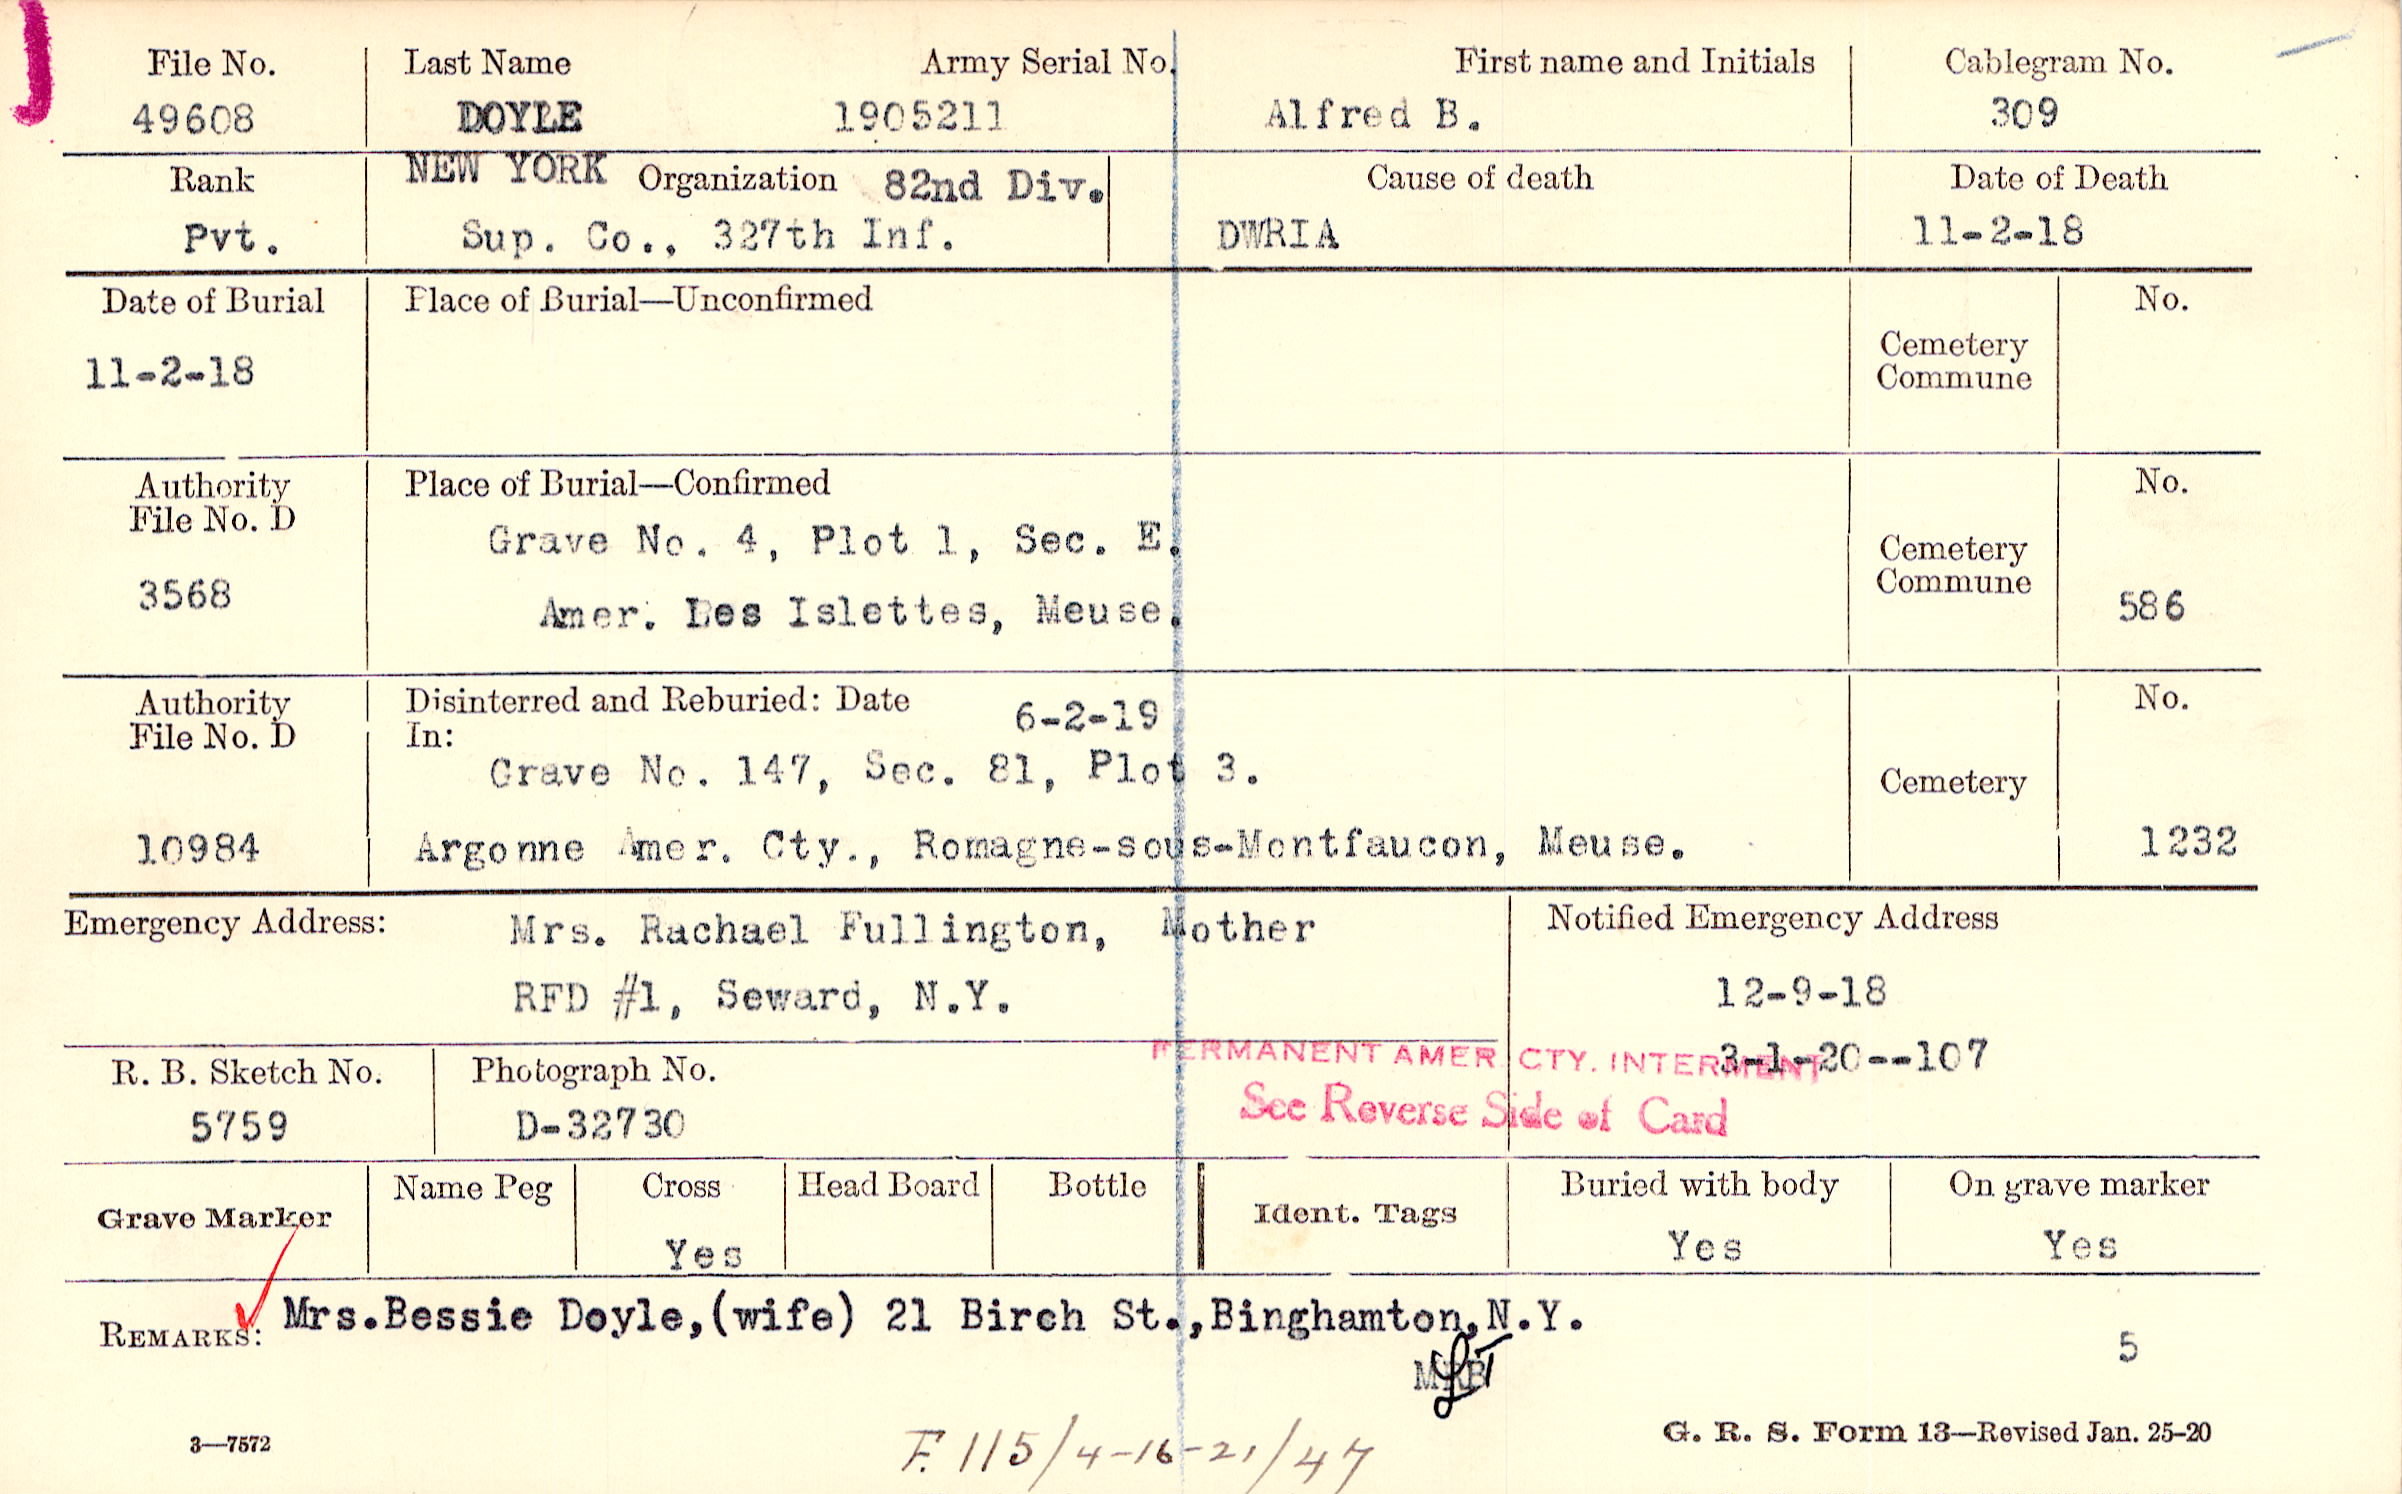 File No. Last Name Army Serial No. First name and Initials Cablegram No.
49608 DOYLE 1905211 Alfred B. 309
Rank NEW YORK Organization 82nd Div. Cause of death Date of Death
Pvt. Sup. Co., 327th Inf. DWRIA 11-2-18
Date of Burial Place of Burial—Unconfirmed No.
11-2-18 Cemetery
Commune
Authority Place of Burial—Confirmed No.
File No. D
Grave No. 4, Plot 1, Sec. E. Cemetery
Commune
3568 Amer. Les Islettes, Meuse. 586
Authority Disinterred and Reburied: Date 6-2-19 No.
File No. D In:
Grave No. 147, Sec. 81, Plot 3. Cemetery
10984 Argonne Amer. Cty., Romagne-sous-Montfaucon, Meuse. 1232
Emergency Address: Mrs. Rachael Fullington, Mother Notified Emergency Address
RFD #1, Seward, N.Y. 12-9-18
PERMANENT AMER. CTY. INTERMENT 3-1-20--107
R. B. Sketch No. Photograph No. See Reverse Side of Card
5759 D-32730
Grave Marker Name Peg Cross Head Board Bottle Ident. Tags Buried with body On grave marker
Yes Yes Yes
REMARKS: Mrs.Bessie Doyle,(wife) 21 Birch St.,Binghamton,N.Y.
MRB 5
3—7572 F. 115/4-16-21/47 G. R. S. Form 13—Revised Jan. 25-20